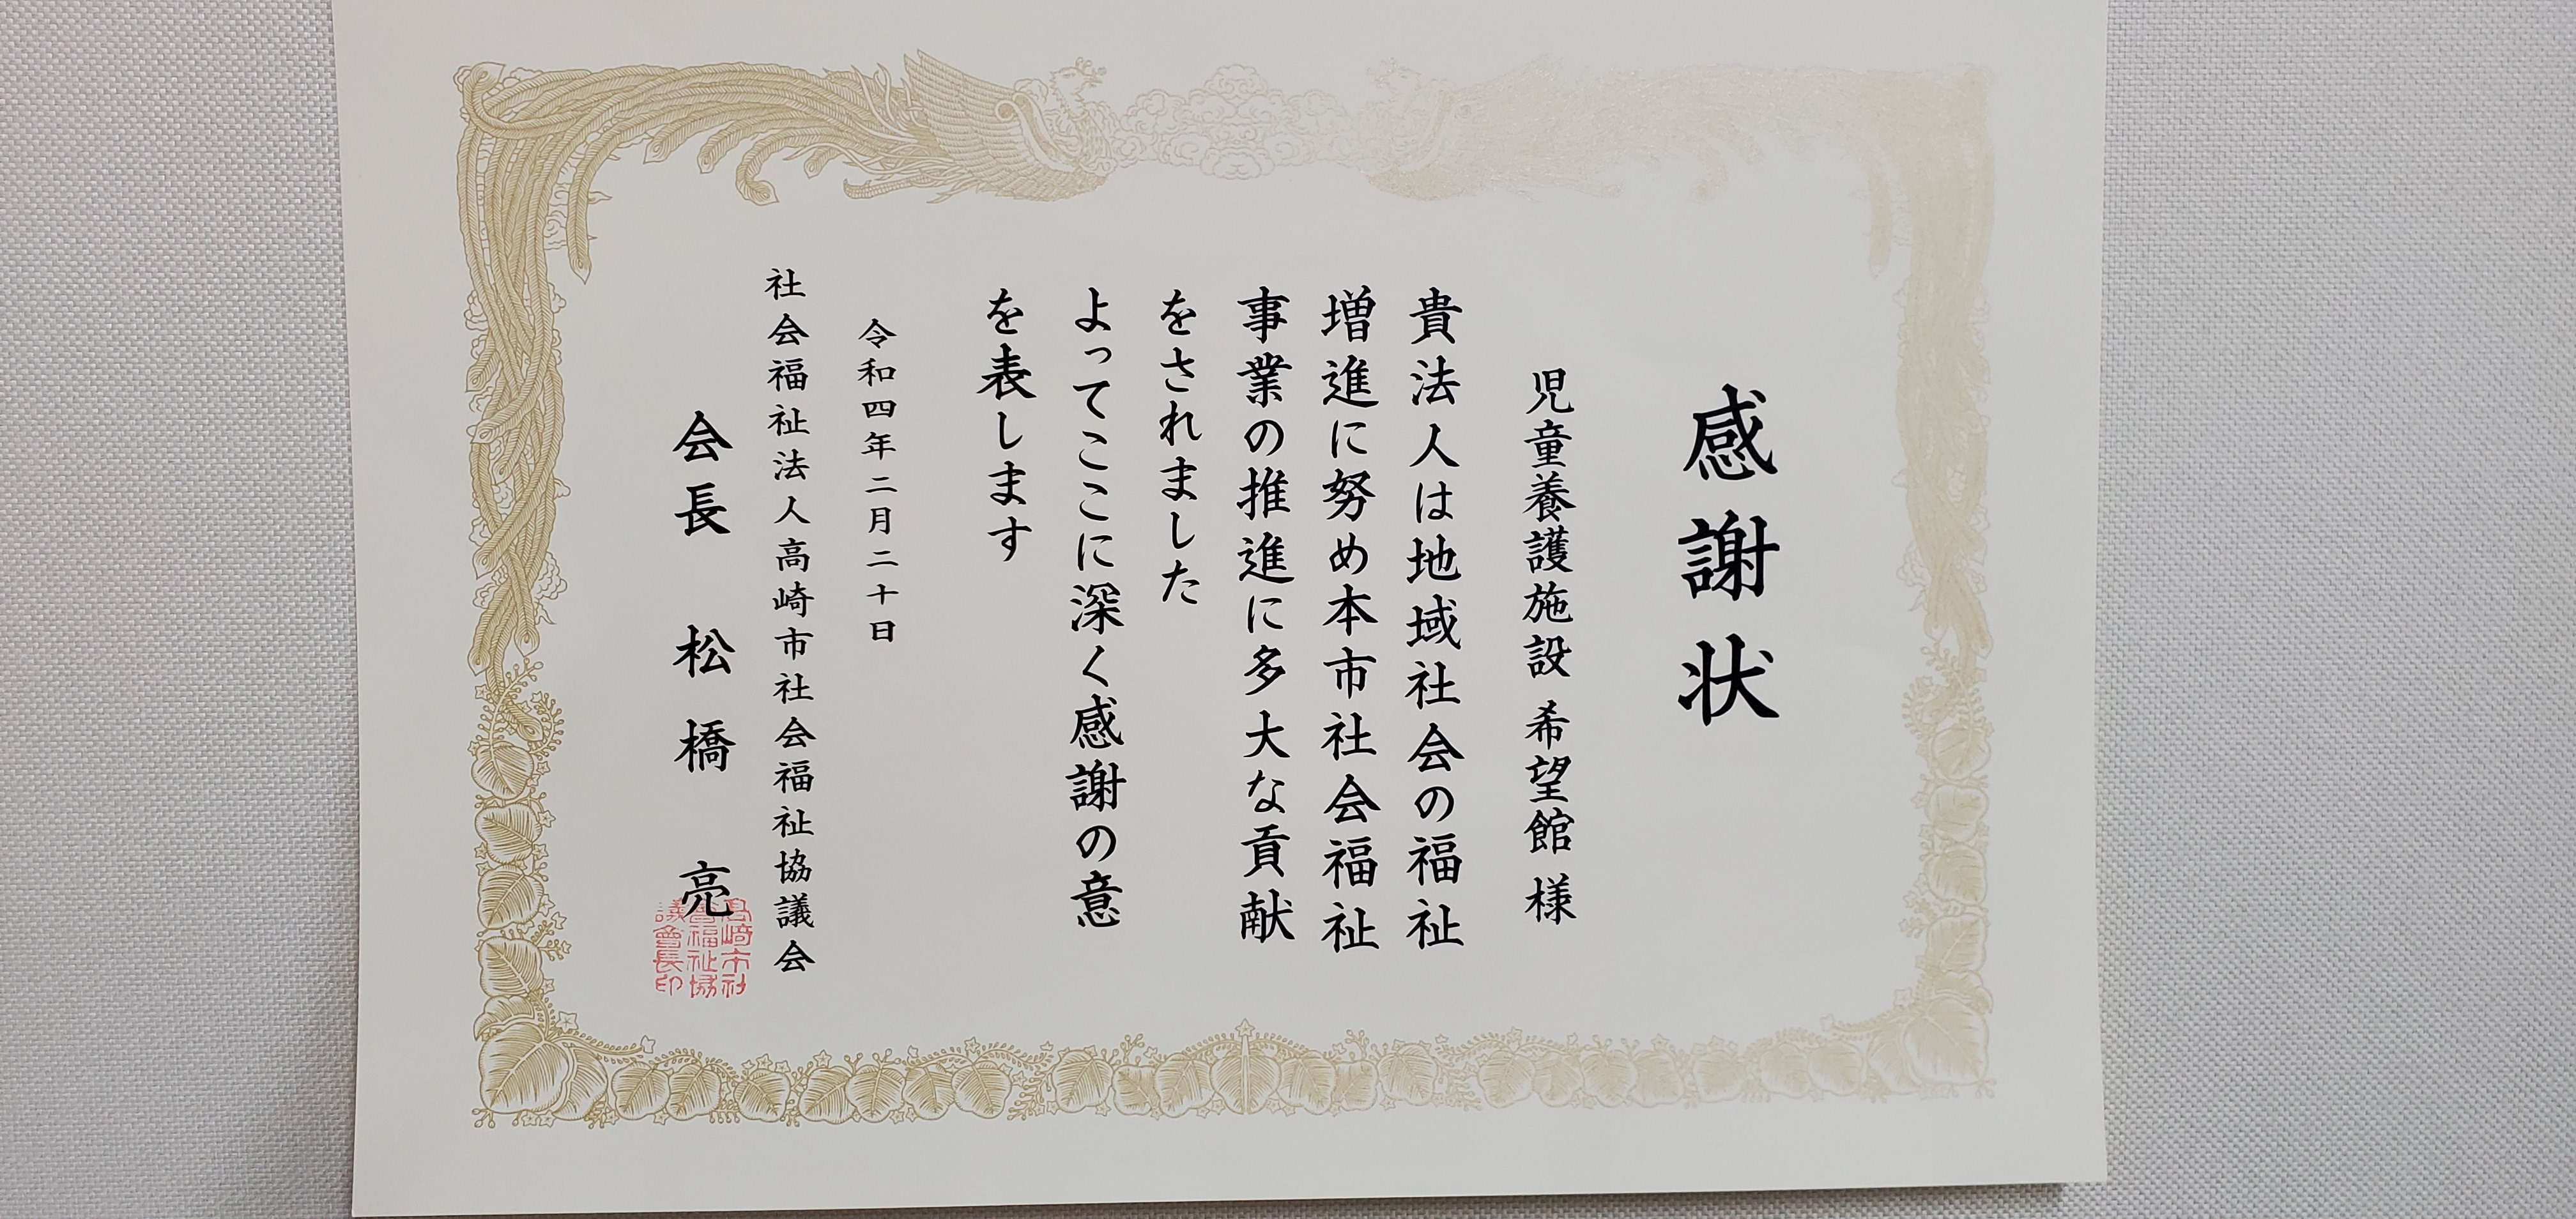 感謝状
児童養護施設 希望館 様
貴法人は地域社会の福祉
増進に努め本市社会福祉
事業の推進に多大な貢献
をされました
よってここに深く感謝の意
を表します
令和四年二月二十日
社会福祉法人高崎市社会福祉協議会
会長 松橋 亮
高崎市社
會福祉協
議會長印